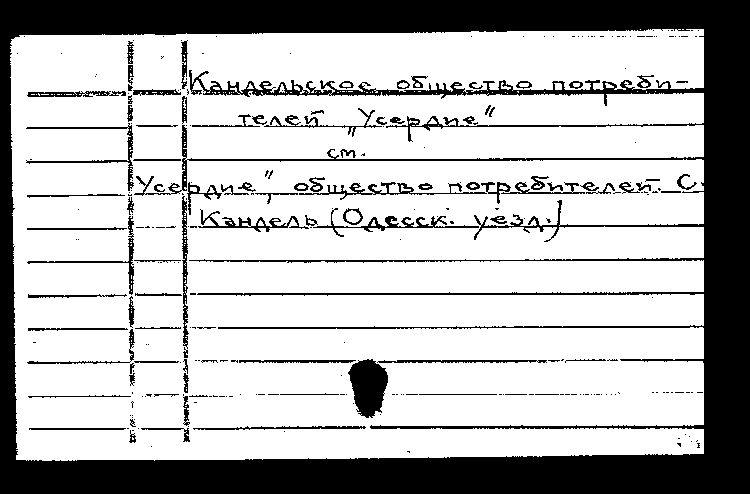 Кандельское общество потреби-
телей „Усердие"
см.
„Усердие", общество потребителей. С.
Кандель (Одесск. уезд.)